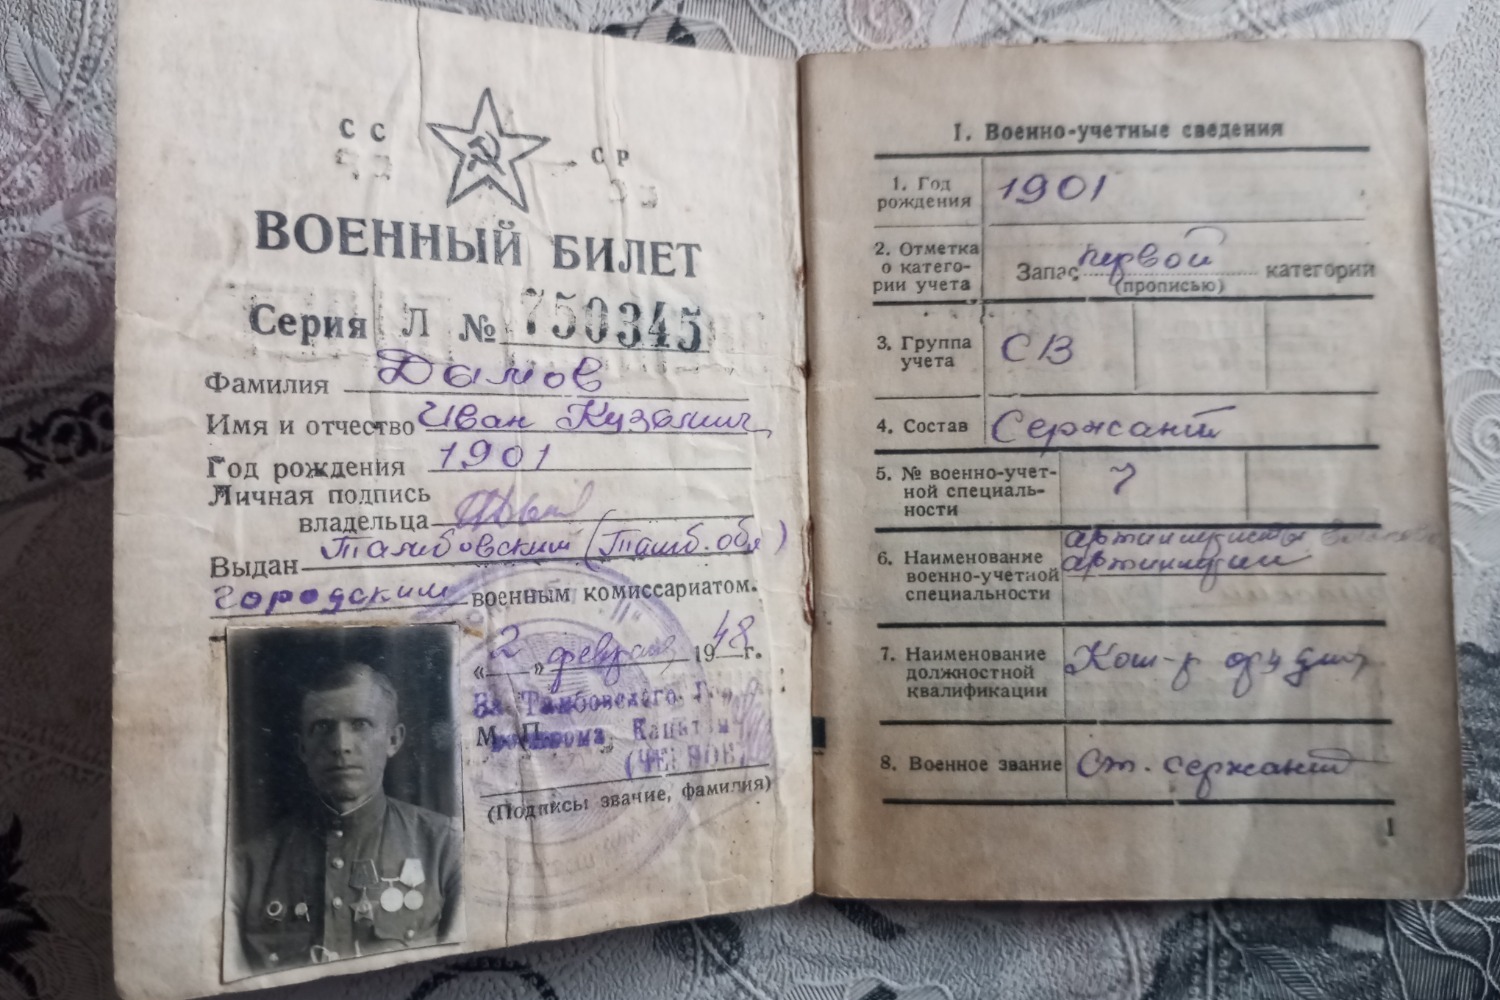 СС СР
ВОЕННЫЙ БИЛЕТ
Серия Л № 750345
Фамилия Дамов
Имя и отчество Иван Кузьмич
Год рождения 1901
Личная подпись
владельца
Выдан Тамбовским (Тамб. обл)
городским военным комиссариатом.
«2» февраля 1948 г.
Вл. Тамбовского
М. П.
(Подпись, звание, фамилия)
I. Военно-учетные сведения
1. Год
рождения
1901
2. Отметка
о катего-
рии учета
Запас первой категории
(прописью)
3. Группа
учета
СВ
4. Состав Сержант
5. № военно-учет-
ной специаль-
ности
7
6. Наименование
военно-учетной
специальности
артиллеристы
артиллерии
7. Наименование
должностной
квалификации
Ком-р орудия
8. Военное звание Ст. сержант
1